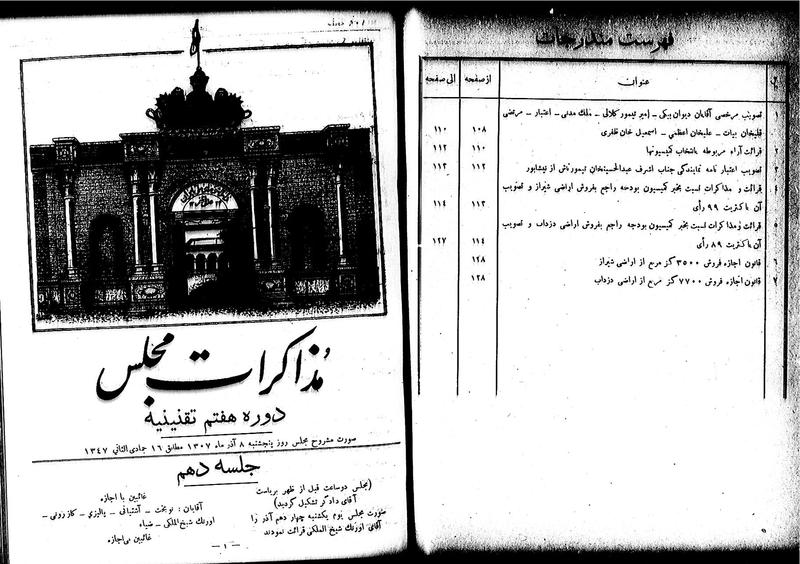 فهرست مندرجات
عنوان
از صفحه
الی صفحه
۱ تصویب مرخصی آقایان دیوان بیگی ـ امیر تیمور کلالی ـ ملك مدنی ـ اعتبار ـ مرتضی
قلیخان بیات ـ علیخان اعظمی ـ اسمعیل خان ظفری ۱۰۸ ۱۱۰
۲ قرائت آراء مربوطه بانتخاب کمیسیونها ۱۱۰ ۱۱۲
۳ تصویب اعتبار نامه نمایندگی جناب اشرف عبدالحسینخان تیمورتاش از نیشابور ۱۱۲ ۱۱۳
۴ قرائت و مذاکرات نسبت بخبر کمیسیون بودجه راجع بفروش اراضی شیراز و تصویب
آن باکثریت ۹۹ رأی ۱۱۳ ۱۱۴
۵ قرائت و مذاکرات نسبت بخبر کمیسیون بودجه راجع بفروش اراضی دزداب و تصویب
آن باکثریت ۸۹ رأی ۱۱۴ ۱۲۷
۶ قانون اجازه فروش ۳۵۰۰ گز مربع از اراضی شیراز ۱۲۸
۷ قانون اجازه فروش ۷۷۰۰ گز مربع از اراضی دزداب ۱۲۸
مذاکرات مجلس
دوره هفتم تقنینیه
صورت مشروح مجلس روز پنجشنبه ۸ آذر ماه ۱۳۰۷ مطابق ۱۶ جمادی الثانی ۱۳۴۷
جلسه دهم
(مجلس دو ساعت قبل از ظهر بریاست
آقای دادگر تشکیل گردید)
صورت مجلس یوم یکشنبه چهار دهم آذر را
آقای اورنك شیخ الملکی قرائت نمودند
غائبین با اجازه
آقایان : نوبخت ـ آشتیانی ـ پالیزی ـ کازرونی ـ
اورنك شیخ الملکی ـ ضیاء
غائبین بی اجازه
ـ ۱ ـ